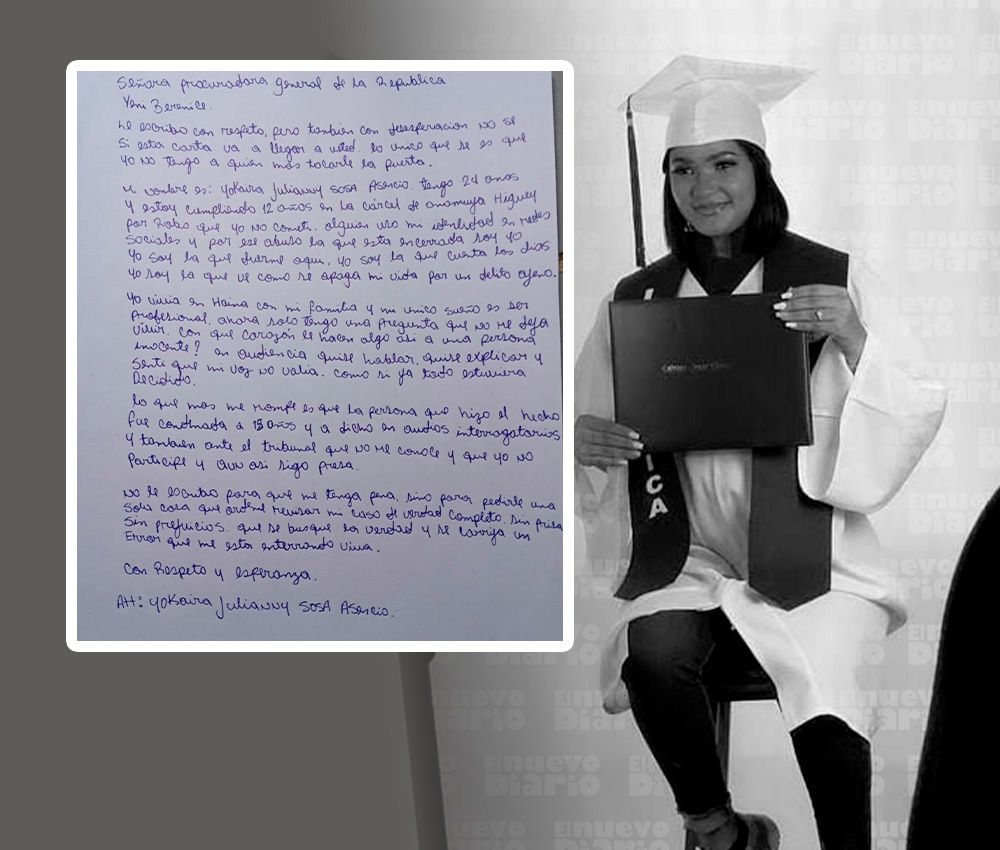 Señora procuradora general de la Republica
Yeni Berenice.
Le escribo con respeto, pero tambien con desesperacion no se
Si esta carta va a llegar a usted. lo unico que se es que
yo no tengo a quien mas tocarle la puerta.
Mi nombre es: Yokaira Julianny Sosa Asencio. tengo 24 años
y estoy cumpliendo 12 años en la carcel de anamuya Higuey
por Robo que yo no cometi. alguien uso mi identidad en redes
Sociales y por ese abuso la que esta encerrada soy yo
Yo soy la que duerme aqui, yo soy la que cuenta los dias
yo soy la que ve como se apaga mi vida por un delito ajeno.
Yo vivia en Haina con mi familia y mi unico sueño es ser
profesional, ahora solo tengo una pregunta que no me deja
vivir. con que corazón le hacen algo asi a una persona
inocente? en audiencia quise hablar, quise explicar y
Senti que mi voz no valia. como si ya todo estuviera
Decidido.
lo que mas me rompe es que la persona que hizo el hecho
fue condnada a 15 años y a dicho en audios interrogatorios
y tambien ante el tribunal que no me conoce y que yo no
Participe y aun asi sigo presa.
No le escribo para que me tenga pena, sino para pedirle una
Sola cosa que ordene revisar mi caso de verdad completo. sin prisa
Sin prejuicios. que se busque la verdad y se corrija un
Error que me esta enterrando viva.
Con Respeto y esperanza.
Att: Yokaira Julianny Sosa Asencio.
ICA
El nuevo Diario